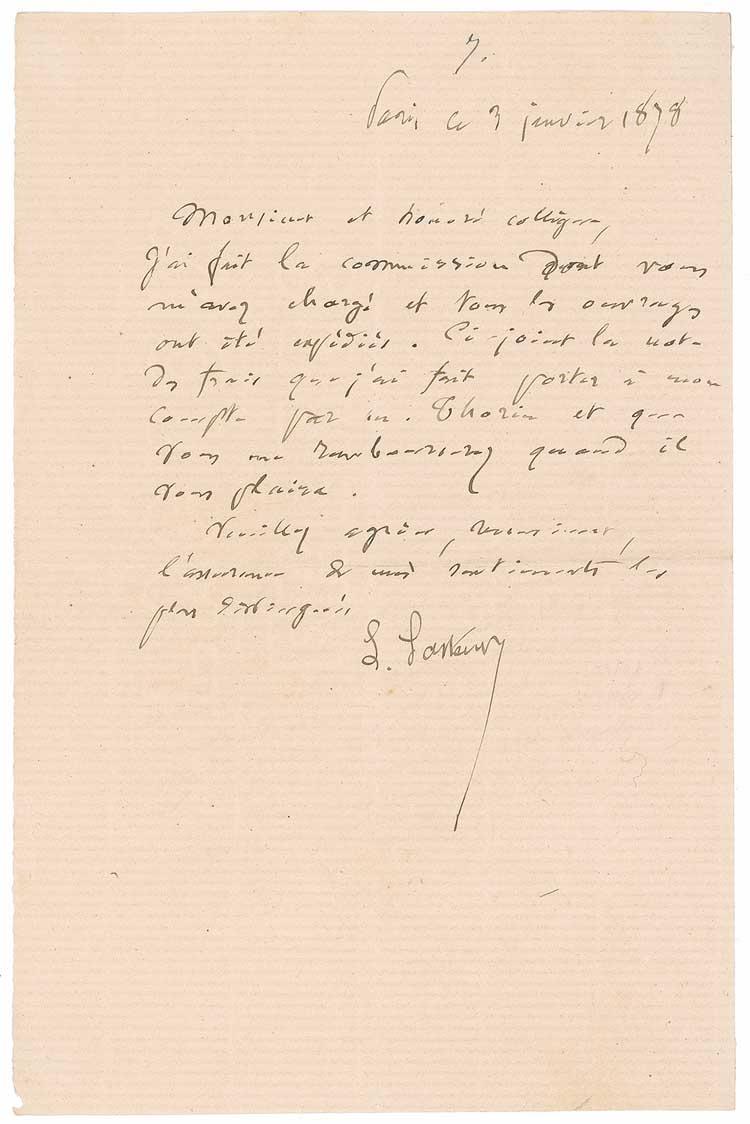 7.
Paris, le 3 janvier 1878
Monsieur et honoré collègue,
J'ai fait la commission dont vous
m'avez chargé et tous les ouvrages
ont été expédiés. Ci-joint la note
des frais que j'ai fait porter à mon
compte par m. Thorin et que
vous me rembourserez quand il
vous plaira.
Veuillez agréer, monsieur,
l'assurance de mes sentiments les
plus distingués
L. Pasteur